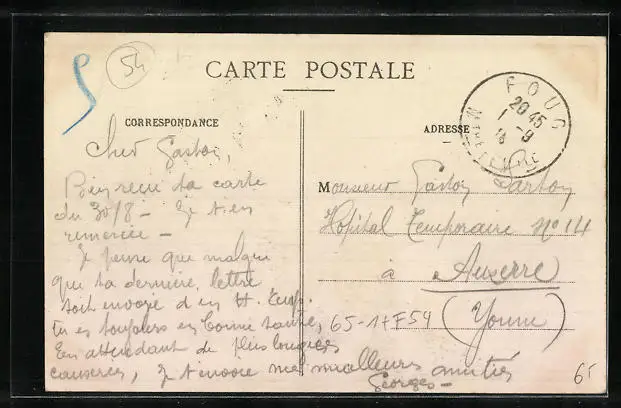 54
CARTE POSTALE
CORRESPONDANCE
ADRESSE
FOUG
20 45
1 - 9
MEURTHE
Cher Gaston,
Bien reçu ta carte
du 30/8 - Je t'en
remercie -
Je pense que malgré
que ta dernière lettre
soit envoyé d'un H. Temp.
tu es toujours en bonne santé,
En attendant de plus longues
causeries, Je t'envoie mes meilleurs amitiés
Georges -
Monsieur Gaston
Hôpital Temporaire N° 14
à Auxerre
(Yonne)
65-1+F54
65